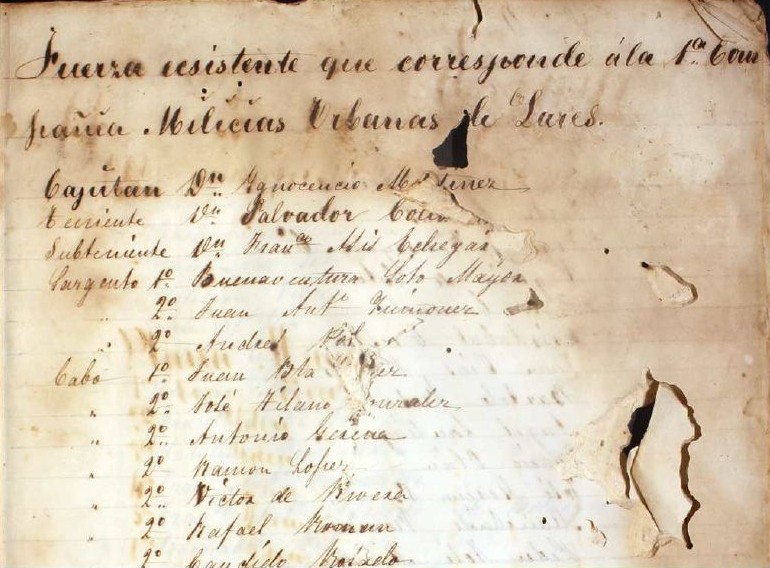 Fuerza ecsistente que corresponde á la 1ª Com
pañia Milicias Urbanas de Lares.
Capitan Dn. Ygnocencio
Teniente Dn. Salvador
Subteniente Dn. Franco.
Sargento 1º. Buenaventura Soto Mayor
" 2º. Juan Anto. Quiñonez
" 2º Andres Pol
Cabo 1º. Juan Bta
" 2º. José Hilario Gonzalez
" 2º. Antonio
" 2º Ramon Lopez
" 2º. Victor de Rivera
" 2º Rafael Roman
2º Candido